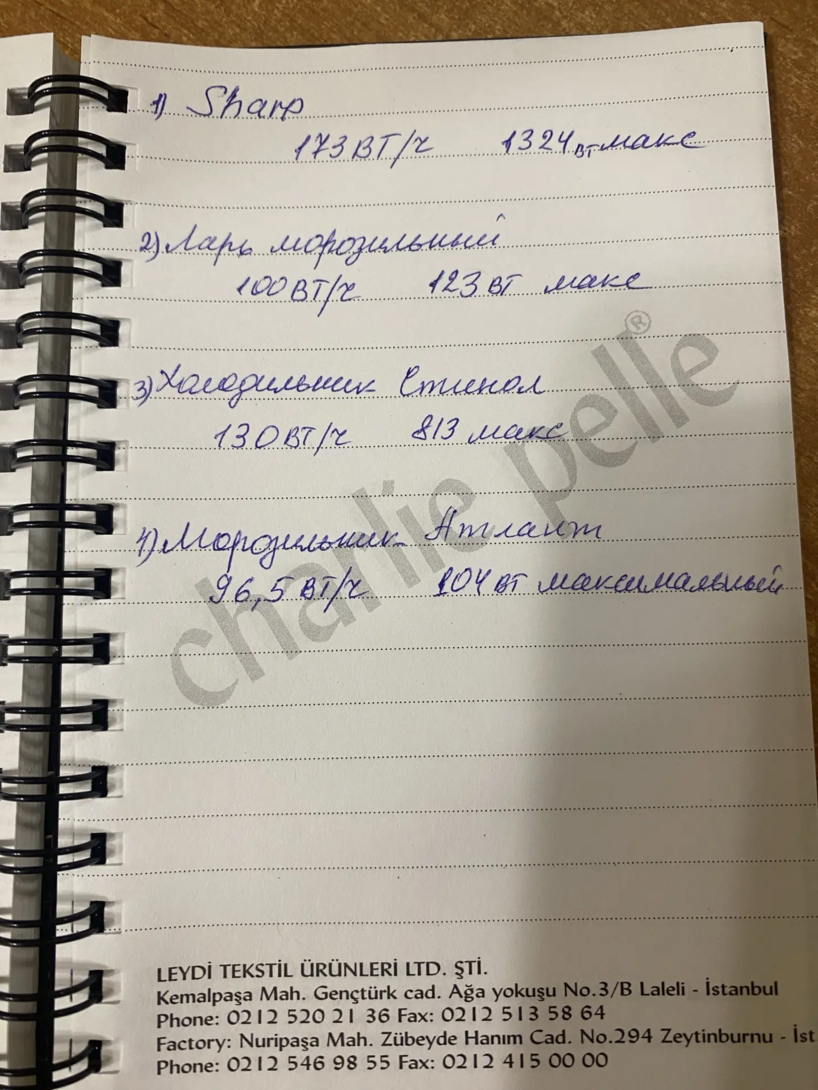 1) Sharp
173 ВТ/ч 1324 ВТ макс
2) Ларь морозильный
100 ВТ/ч 123 ВТ макс
3) Холодильник Стинол
130 ВТ/ч 813 макс
4) Морозильник Атлант
96,5 ВТ/ч 104 ВТ максимальный
charlie pelle®
LEYDİ TEKSTİL ÜRÜNLERİ LTD. ŞTİ.
Kemalpaşa Mah. Gençtürk cad. Ağa yokuşu No.3/B Laleli - İstanbul
Phone: 0212 520 21 36 Fax: 0212 513 58 64
Factory: Nuripaşa Mah. Zübeyde Hanım Cad. No.294 Zeytinburnu - İst
Phone: 0212 546 98 55 Fax: 0212 415 00 00